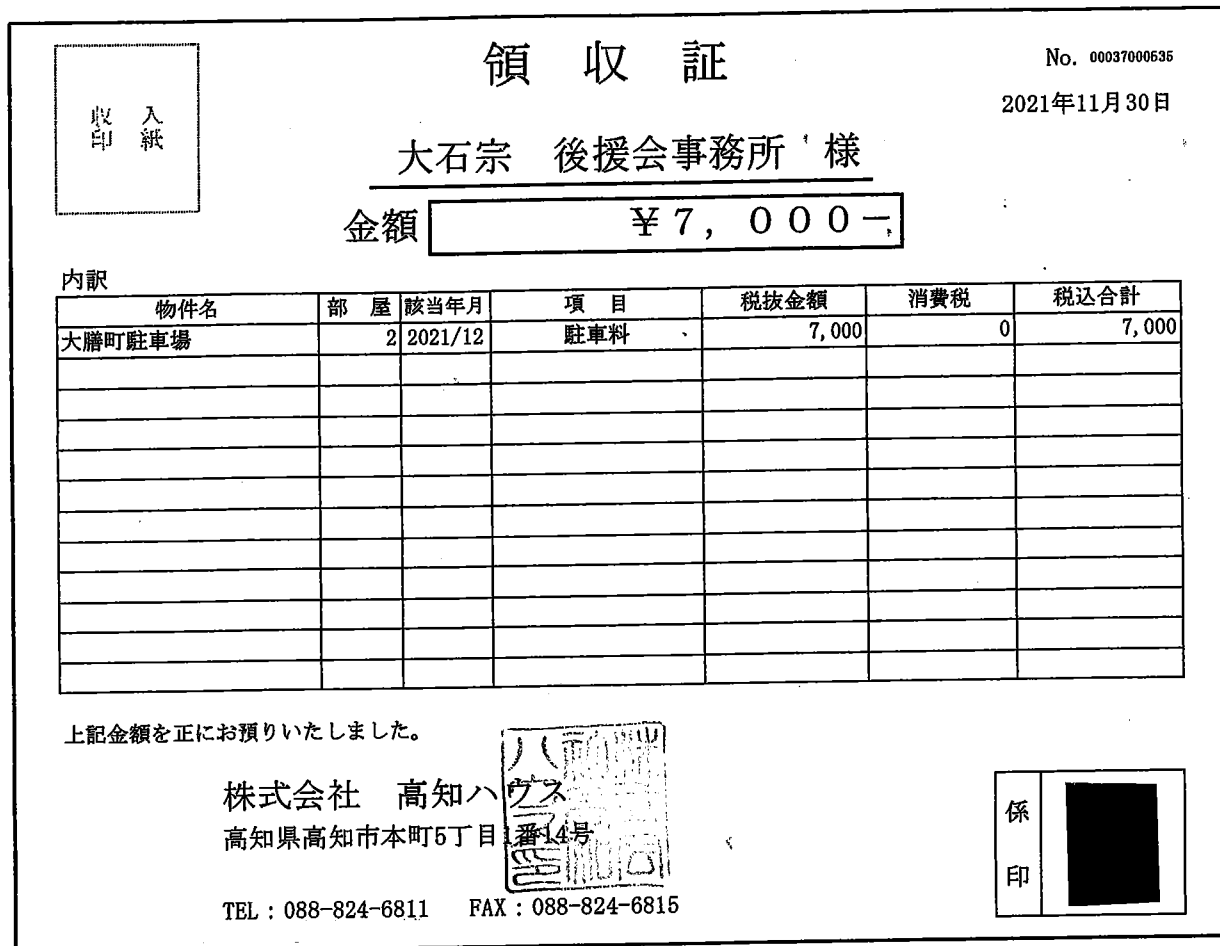 領 収 証
No. 00037000535
2021年11月30日
収 入
印 紙
大石宗 後援会事務所 様
金額 ¥7,000-
内訳
物件名 部 屋 該当年月 項 目 税抜金額 消費税 税込合計
大膳町駐車場 2 2021/12 駐車料 7,000 0 7,000
上記金額を正にお預りいたしました。
株式会社 高知ハウス
高知県高知市本町5丁目1番14号
TEL:088-824-6811 FAX:088-824-6815
係
印